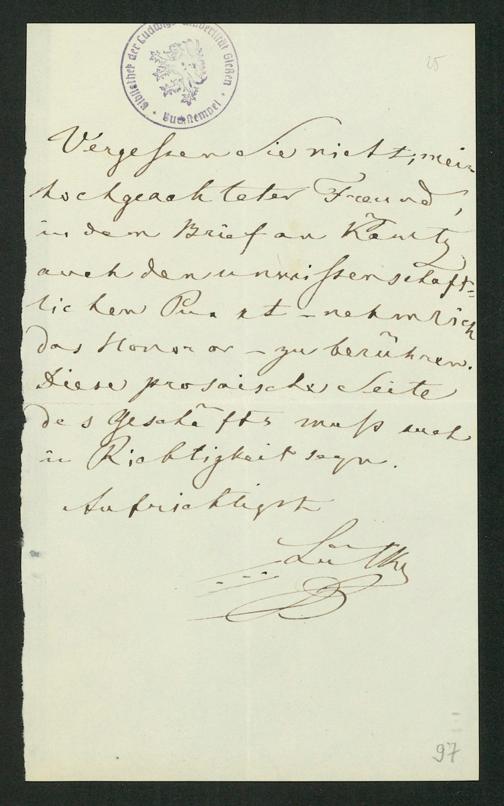 Bibliothek der Ludwigs-Universität Gießen · Buchstempel ·
25
Vergessen Sie nicht, mein
hochgeachteter Freund,
in dem Brief an Kämtz,
auch den unwissenschaft=
lichen Punkt – nehmlich
das Honorar – zu berühren.
Diese prosaische Seite
des Geschäfts muß auch
in Richtigkeit seyn.
Aufrichtigst
97